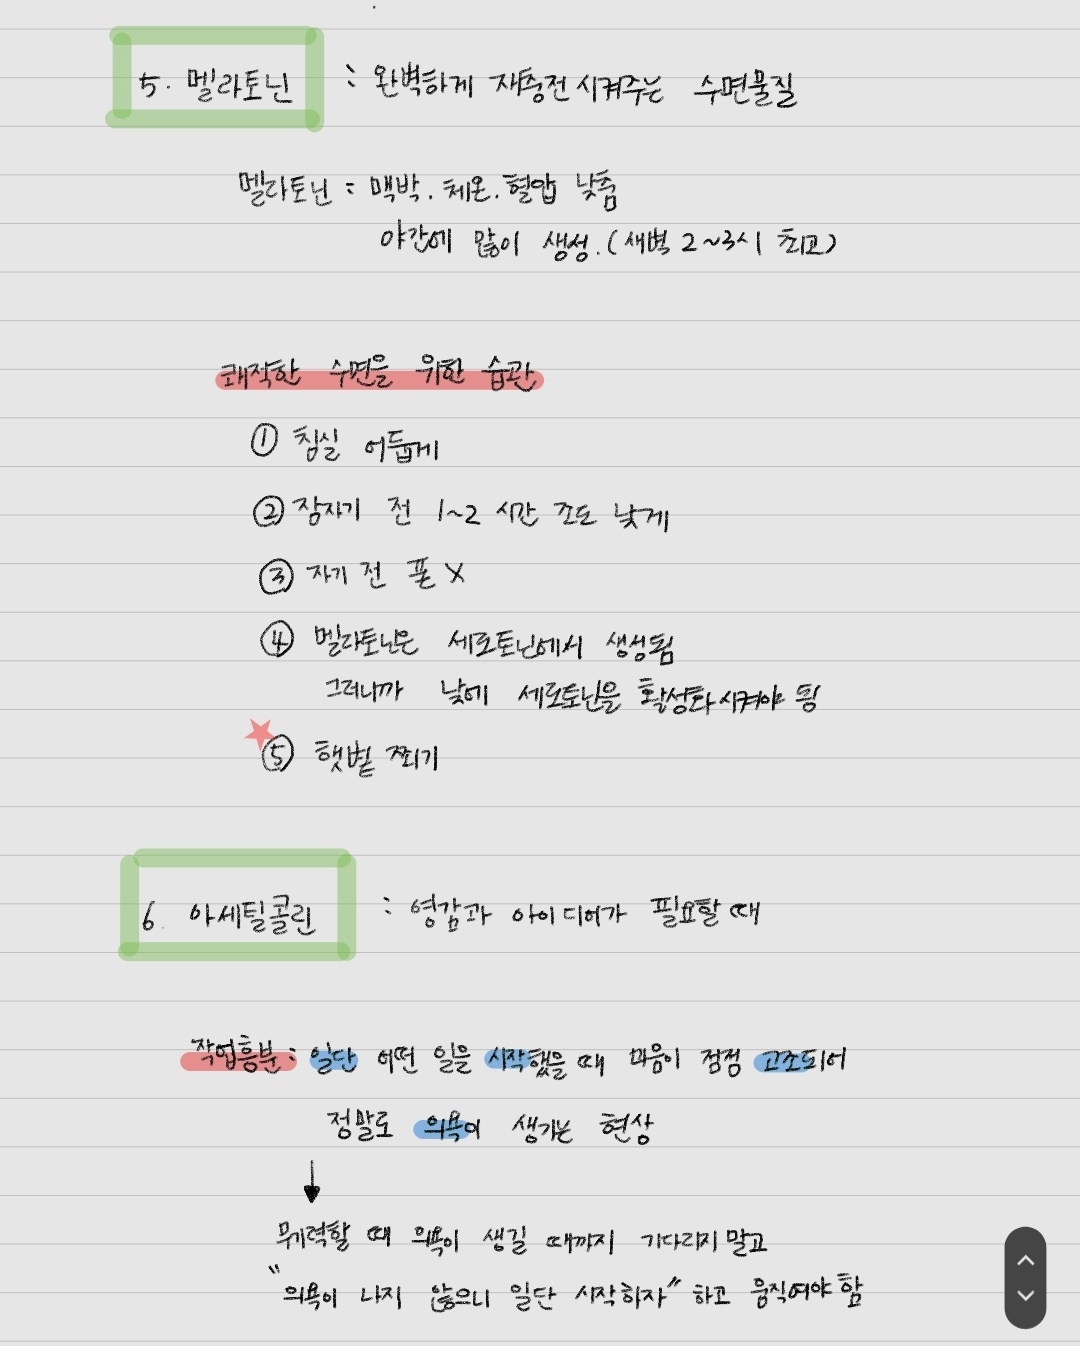 5. 멜라토닌 : 완벽하게 재충전 시켜주는 수면물질
멜라토닌 : 맥박. 체온. 혈압 낮춤
야간에 많이 생성. (새벽 2~3시 최고)
쾌적한 수면을 위한 습관
① 침실 어둡게
② 잠자기 전 1~2 시간 조도 낮게
③ 자기 전 폰 X
④ 멜라토닌은 세로토닌에서 생성됨
그러니까 낮에 세로토닌을 활성화 시켜야 됨
⑤ 햇볕 쬐기
6. 아세틸콜린 : 영감과 아이디어가 필요할 때
작업흥분 : 일단 어떤 일을 시작했을 때 마음이 점점 고조되어
정말로 의욕이 생기는 현상
무기력할 때 의욕이 생길 때까지 기다리지 말고
"의욕이 나지 않으니 일단 시작하자" 하고 움직여야 함